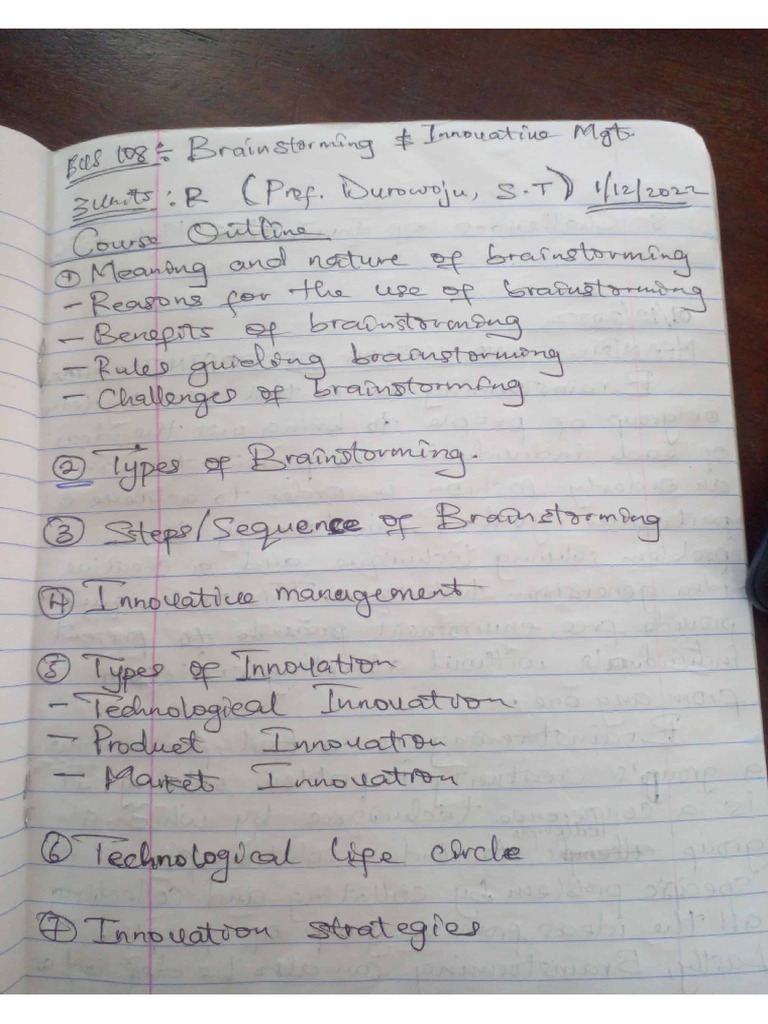 BUS 108 :- Brainstorming & Innovative Mgt.
3units : R (Prof. Durowoju, S.T) 1/12/2022
Course Outline
① Meaning and nature of brainstorming
- Reasons for the use of brainstorming
- Benefits of brainstorming
- Rules guiding brainstorming
- Challenges of brainstorming
② Types of Brainstorming.
③ Steps/Sequence of Brainstorming
④ Innovative management
⑤ Types of Innovation
- Technological Innovation.
- Product Innovation
- Market Innovation
⑥ Technological life circle
⑦ Innovation strategies